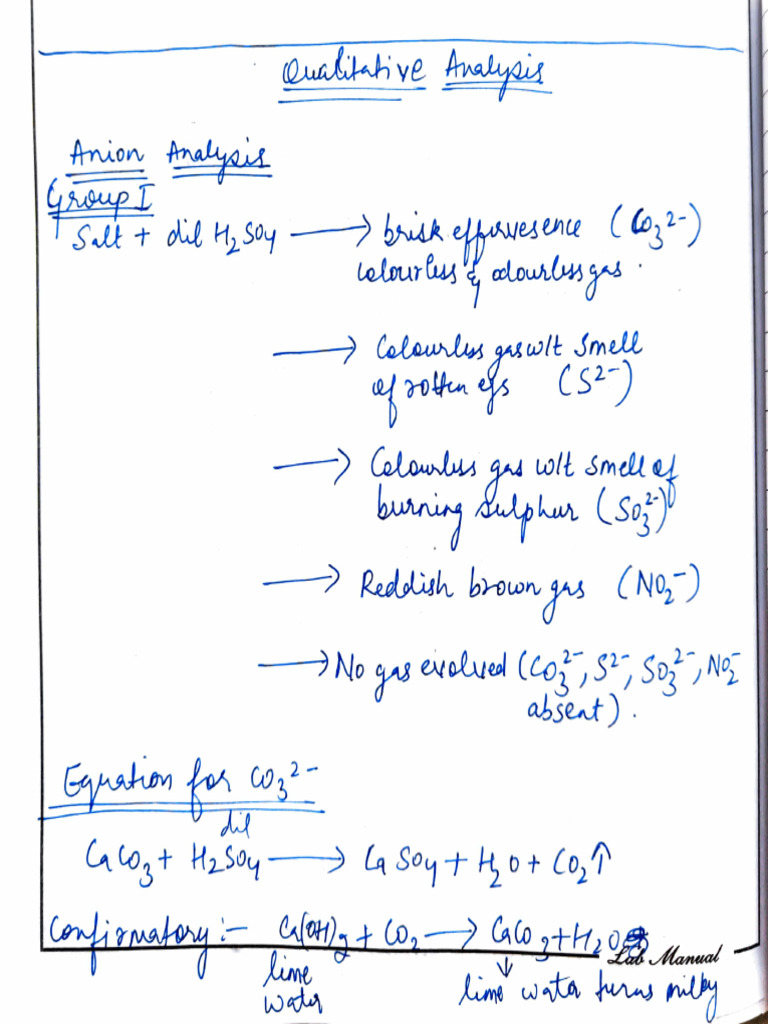 Qualitative Analysis
Anion Analysis
Group I
Salt + dil H₂SO₄ ⟶ brisk effervesence (CO₃²⁻)
colourless & odourless gas.
⟶ Colourless gas w/t smell
of rotten egs (S²⁻)
⟶ Colourless gas w/t smell of
burning sulphur (SO₃²⁻)
⟶ Reddish brown gas (NO₂⁻)
⟶ No gas evolved (CO₃²⁻, S²⁻, SO₃²⁻, NO₂⁻
absent).
Equation for CO₃²⁻
dil
CaCO₃ + H₂SO₄ ⟶ CaSO₄ + H₂O + CO₂↑
Confirmatory :- Ca(OH)₂ + CO₂ ⟶ CaCO₃ + H₂O
Lab Manual
lime ↓ lime water turns milky
water